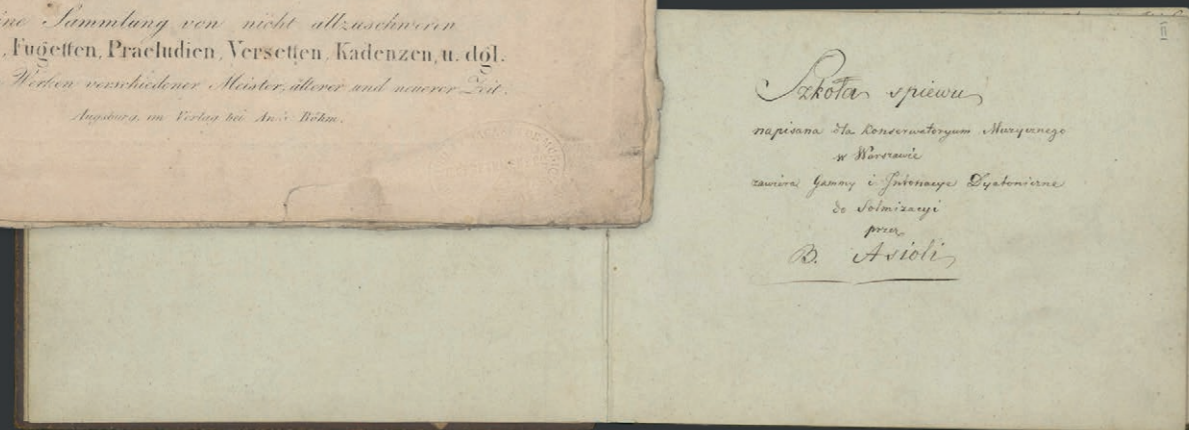 ine Sammlung von nicht allzuschweren
, Fugetten, Praeludien, Versetten, Kadenzen, u. dgl.
Werken verschiedener Meister, älterer und neuerer Zeit.
Augsburg, im Verlag bei And: Böhm.
III
Szkoła spiewu
napisana dla Conserwatoryum Muzycznego
w Warszawie
zawiera Gammy i Intonacye Dyatoniczne
do Solmizacyi
przez
B. Asioli